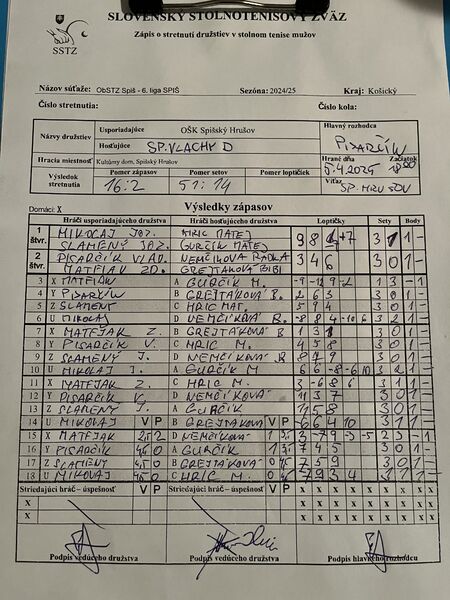 SLOVENSKÝ STOLNOTENISOVÝ ZVÄZ
Zápis o stretnutí družstiev v stolnom tenise mužov
SSTZ
Názov súťaže: ObSTZ Spiš - 6. liga SPIŠ Sezóna: 2024/25 Kraj: Košický
Číslo stretnutia: Číslo kola:
Názvy družstiev Usporiadajúce OŠK Spišský Hrušov Hlavný rozhodca
Hosťujúce SP. VLACHY D PISARČÍK
Hracia miestnosť Kultúrny dom, Spišský Hrušov Hrané dňa Začiatok
Výsledok stretnutia Pomer zápasov Pomer setov Pomer loptičiek
16:2 51:14 Víťaz
Domáci: X Výsledky zápasov
Hráči usporiadajúceho družstva Hráči hosťujúceho družstva Loptičky Sety Body
1 štvr. MIKOLAJ JOZ. HRIC MATEJ
SLAMENÝ JOZ. GURČÍK MATEJ
2 štvr. PISARČÍK VLAD. NEMČÍKOVÁ RADKA 3 4 6 3 0 1 -
MATEJAK ZD. GREJTAKOVÁ BIBI
3 X MATEJAK A GURČÍK M. 1 3 - 1
4 Y PISARČÍK B GREJTAKOVÁ B. 2 6 3 3 0 1 -
5 Z SLAMENÝ C HRIC MAT. 5 9 4 3 0 1 -
6 U MIKOLAJ D NEMČÍKOVÁ R. -8 8 4 -10 6 3 2 1 -
7 X MATEJAK Z. B GREJTAKOVÁ B 3 0 1 -
8 Y PISARČÍK V. C HRIC M. 4 5 8 3 0 1 -
9 Z SLAMENÝ J. D NEMČÍKOVÁ R 8 7 9 3 0 1 -
10 U MIKOLAJ J. A GURČÍK M 6 6 -8 -6 10 3 2 1 -
11 X MATEJAK Z. C HRIC M. 3 -6 8 6 3 1 1 -
12 Y PISARČÍK V. D NEMČÍKOVÁ 11 3 7 3 0 1 -
13 Z SLAMENÝ J. A GURČÍK 11 5 8 3 0 1 -
14 U MIKOLAJ V P B GREJTAKOVÁ V P -6 6 4 10 3 1 1 -
15 X MATEJAK D NEMČÍKOVÁ 3 -7 9 -3 -5 2 3 - 1
16 Y PISARČÍK A GURČÍK 7 4 5 3 0 1 -
17 Z SLAMENÝ B GREJTAKOVÁ 7 5 9 3 0 1 -
18 U MIKOLAJ C HRIC M. 3 1 1 -
Striedajúci hráč – úspešnosť V P Striedajúci hráč – úspešnosť V P x x x x x x x x
X x x x x x x x x
X x x x x x x x x
Podpis vedúceho družstva Podpis vedúceho družstva Podpis hlavného rozhodcu